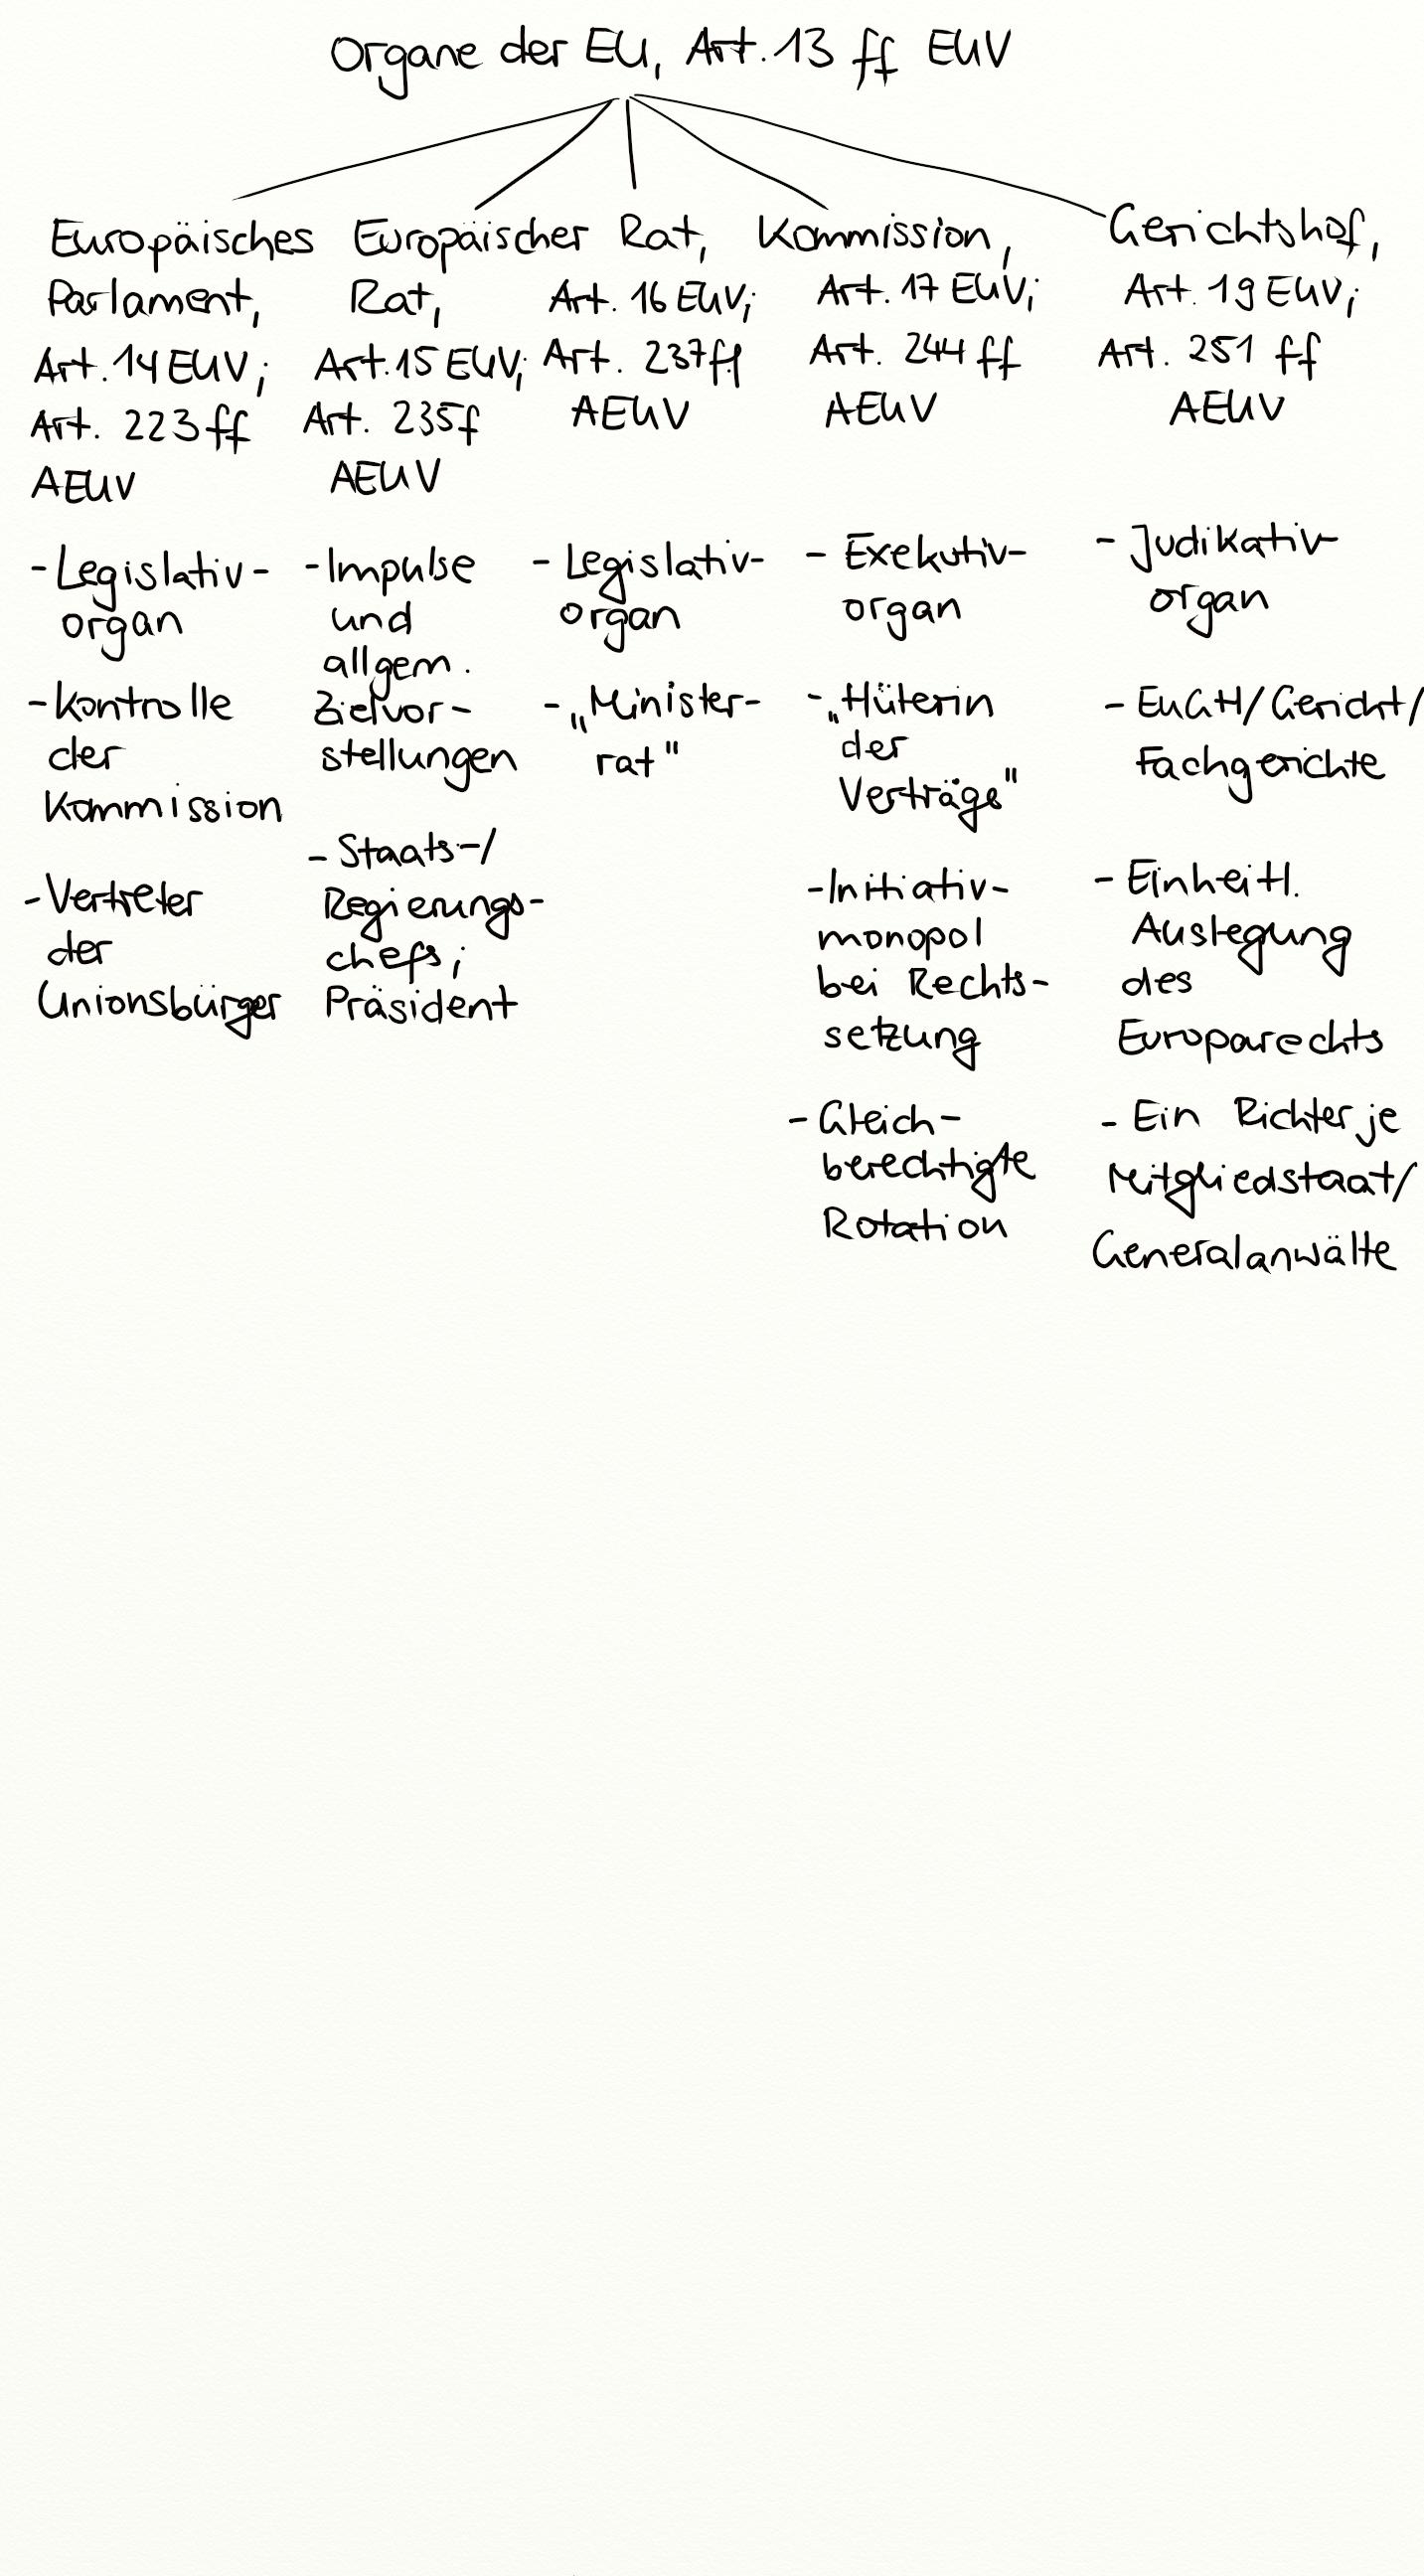 Organe der EU, Art. 13 ff EUV
Europäisches
Parlament,
Art. 14 EUV;
Art. 223 ff
AEUV
- Legislativ-
organ
- Kontrolle
der
Kommission
- Vertreter
der
Unionsbürger
Europäischer
Rat,
Art. 15 EUV;
Art. 235f
AEUV
- Impulse
und
allgem.
Zielvor-
stellungen
- Staats-/
Regierungs-
chefs;
Präsident
Rat,
Art. 16 EUV;
Art. 237ff
AEUV
- Legislativ-
organ
- „Minister-
rat"
Kommission,
Art. 17 EUV;
Art. 244 ff
AEUV
- Exekutiv-
organ
- „Hüterin
der
Verträge"
- Initiativ-
monopol
bei Rechts-
setzung
- Gleich-
berechtigte
Rotation
Gerichtshof,
Art. 19 EUV;
Art. 251 ff
AEUV
- Judikativ-
organ
- EuGH/Gericht/
Fachgerichte
- Einheitl.
Auslegung
des
Europarechts
- Ein Richter je
Mitgliedstaat/
Generalanwälte